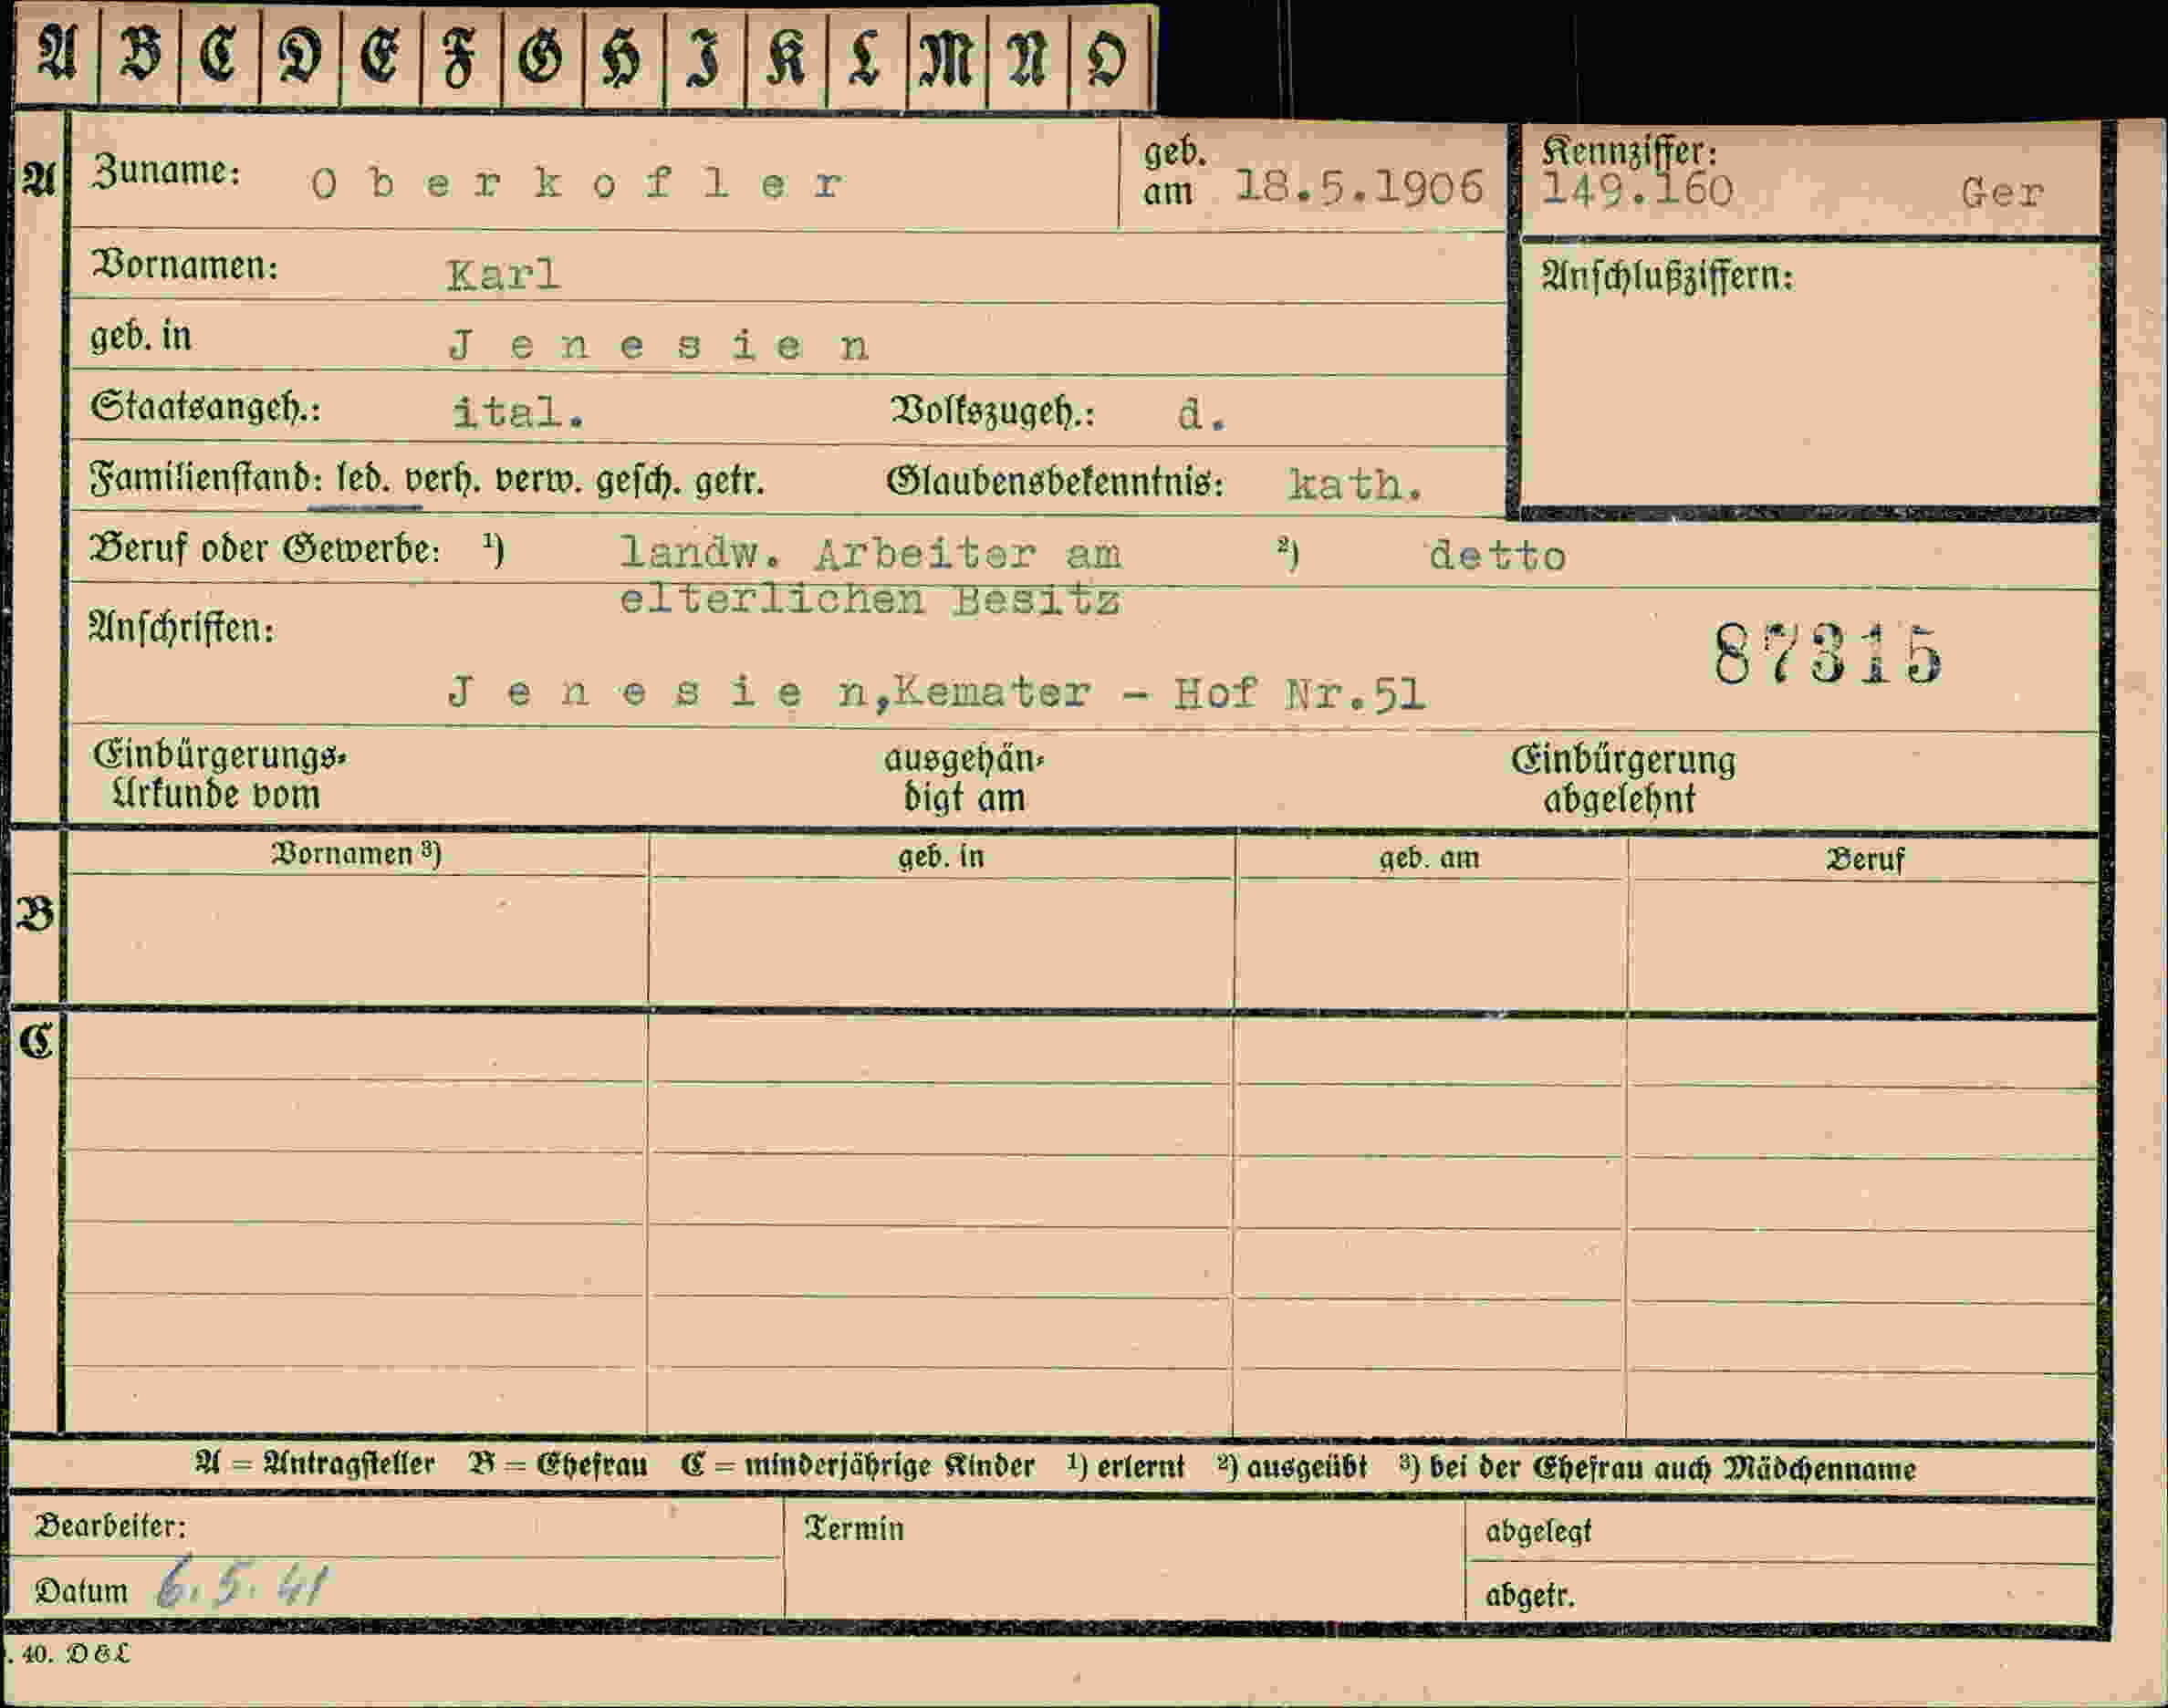 A B C D E F G H I K L M N O
A Zuname: Oberkofler geb. am 18.5.1906 Kennziffer: 149.160 Ger
Vornamen: Karl Anschlußziffern:
geb. in Jenesien
Staatsangeh.: ital. Volkszugeh.: d.
Familienstand: led. verh. verw. gesch. getr. Glaubensbekenntnis: kath.
Beruf oder Gewerbe: 1) landw. Arbeiter am 2) detto
elterlichen Besitz
Anschriften: 87315
Jenesien,Kemater - Hof Nr.51
Einbürgerungs- ausgehän- Einbürgerung
Urkunde vom digt am abgelehnt
Vornamen 3) geb. in geb. am Beruf
B
C
A = Antragsteller B = Ehefrau C = minderjährige Kinder 1) erlernt 2) ausgeübt 3) bei der Ehefrau auch Mädchenname
Bearbeiter: Termin abgelegt
Datum 6.5.41 abgetr.
. 40. D&L